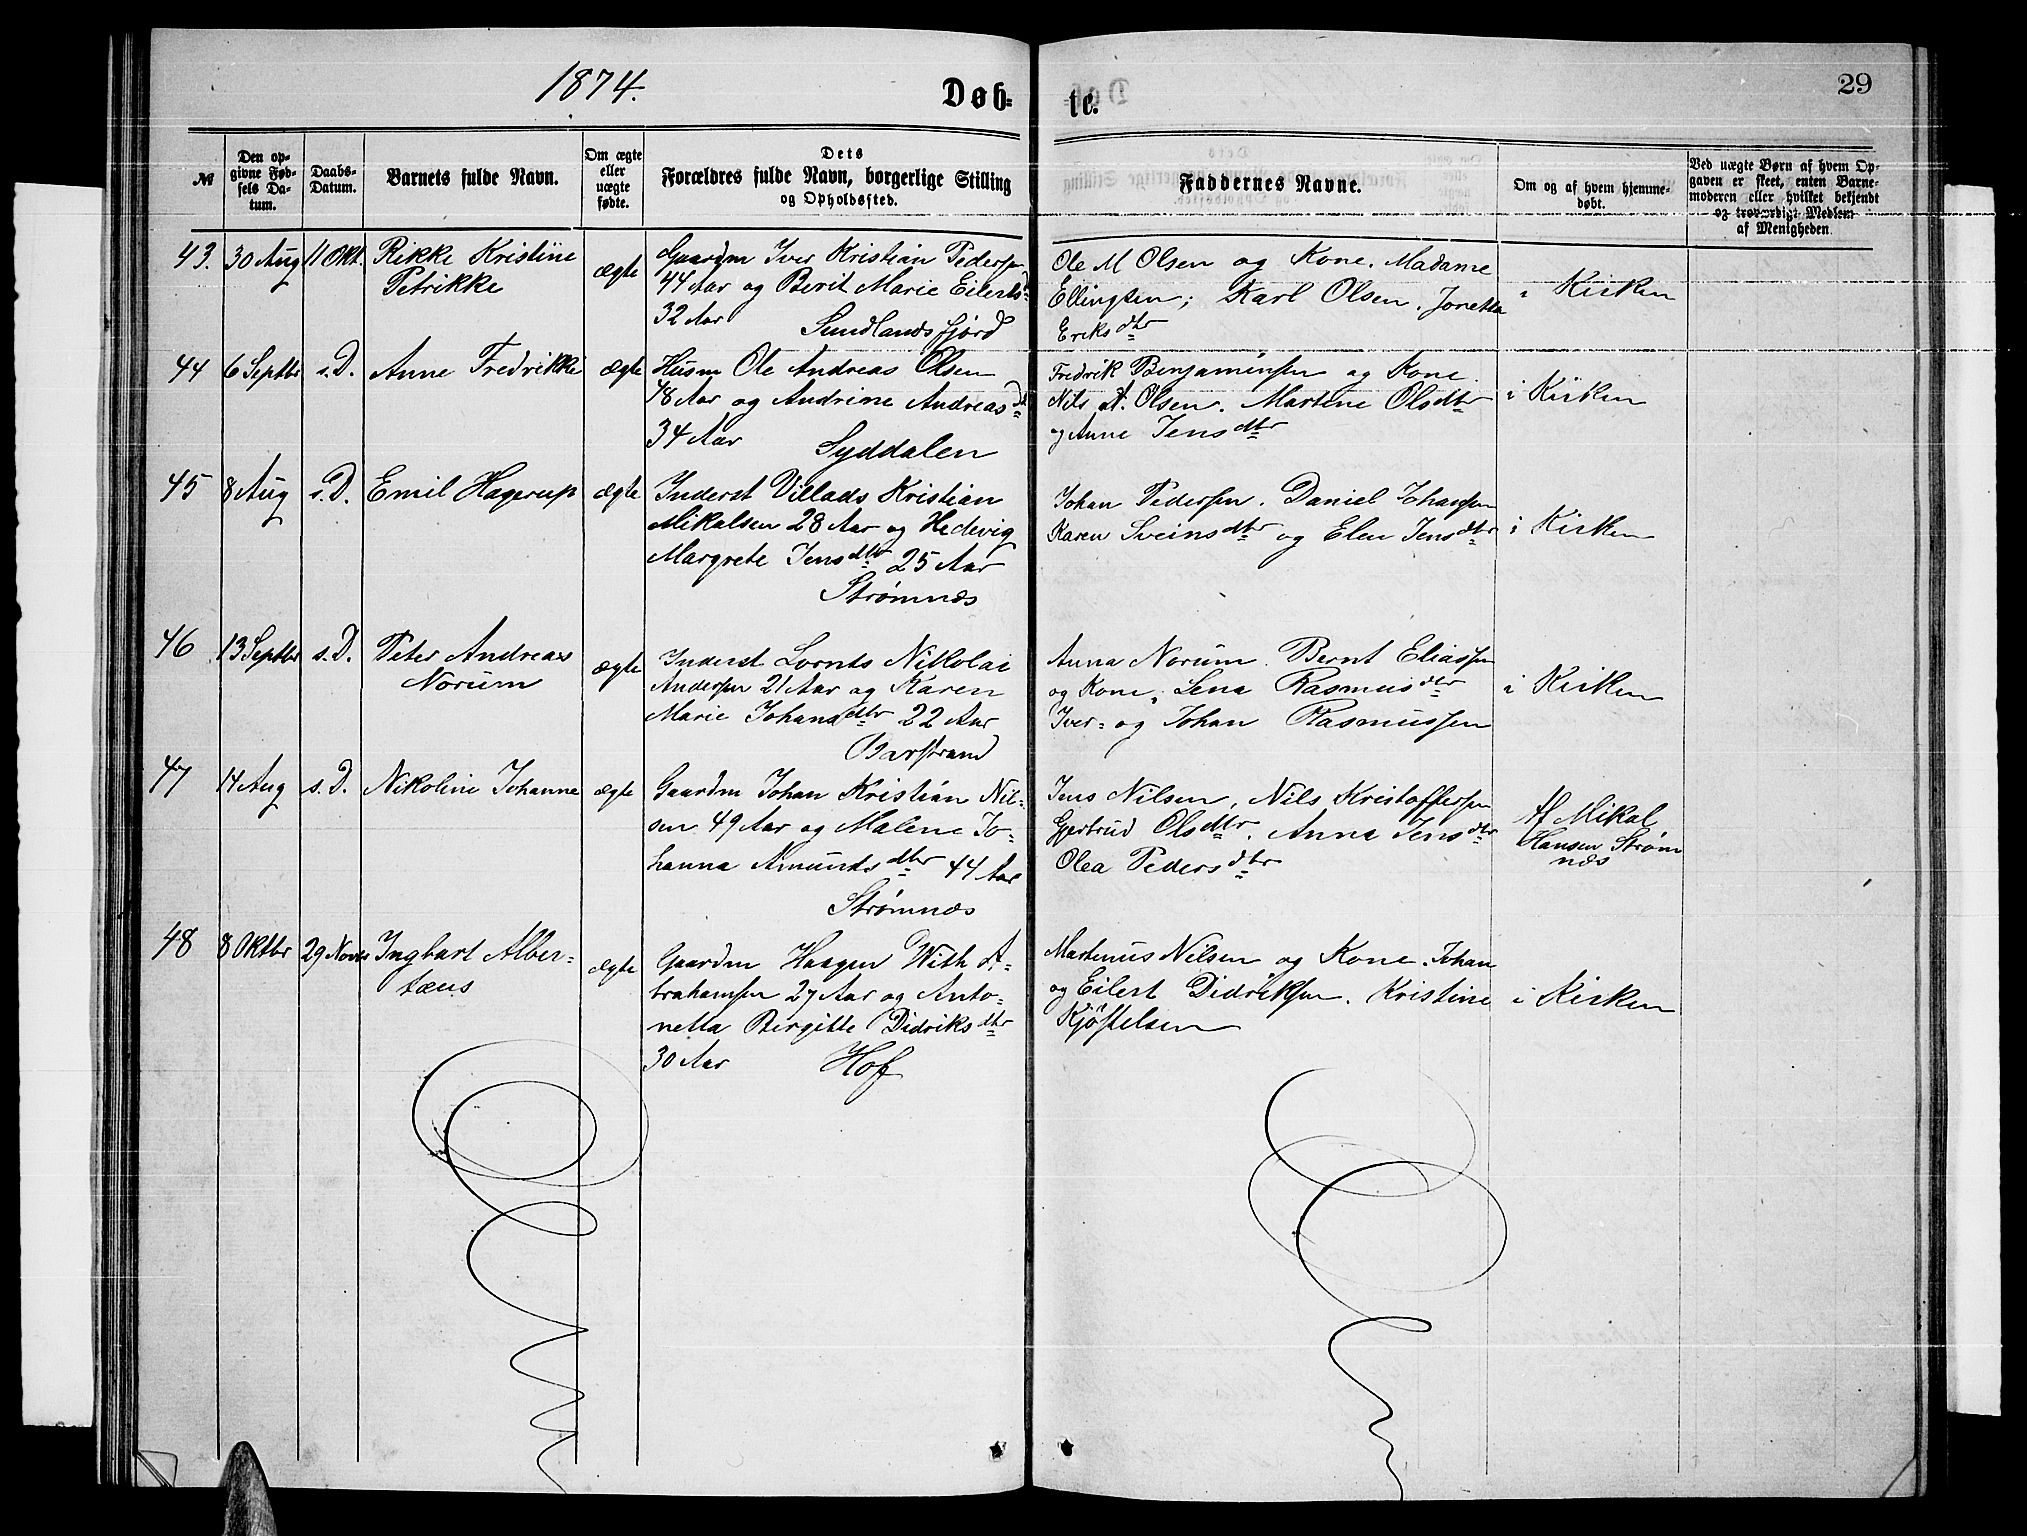 1874.
Døb-
te.
29
№
Den op-
givne Fød-
sels Da-
tum.
Daabs-
Datum.
Barnets fulde Navn.
Om ægte
eller
uægte
fødte.
Dets
Forældres fulde Navn, borgerlige Stilling
og Opholdssted.
Faddernes Navne.
Om og af hvem hjemme-
døbt.
Ved uægte Børn af hvem Op-
gaven er skeet, enten Barne-
moderen eller hvilket bekjendt
og troværdigt Medlem
af Menigheden.
43. 30 Aug 11 Okt. Rikke Kristine
Petrikke
ægte
Gaardm Iver Kristian Pedersen
44 Aar og Berit Marie Eilertsd
32 Aar Sundlandsfjord
Ole M Olsen og Kone. Madame
Ellingsen; Karl Olsen. Jonetta
Eriksdtr
i Kirken
44 6 Septbr s.D. Anne Fredrikke ægte
Husm Ole Andreas Olsen
48 Aar og Andrine Andreasdt
34 Aar Syddalen
Fredrik Benjaminsen og Kone.
Nils A. Olsen. Martine Olsdtr
og Anne Jensdtr
i Kirken
45 8 Aug s.D. Emil Hagerup ægte
Inderst Villads Kristian
Mikalsen 28 Aar og Hedevig
Margrete Jensdtr 25 Aar
Strømnæs
Johan Pedersen. Daniel Johansen
Karen Sveinsdtr og Elen Jensdtr
i Kirken
46 13 Septbr s.D. Peter Andreas
Norum
ægte
Inderst Lornts Nikolai
Andersen 21 Aar og Karen
Marie Johansdtr 22 Aar
Barstrand
Anna Norum. Bernt Eliassen
og Kone, Lena Rasmusdtr
Iver- og Johan Rasmussen
i Kirken
47 14 Aug s.D. Nikoline Johanne ægte
Gaardm Johan Kristian Nil-
sen 49 Aar og Malene Jo-
hanna Amundsdtr 44 Aar
Strømnæs
Jens Nilsen, Nils Kristoffersen
Gjertrud Olsdtr. Anna Jensdtr
Olea Pedersdtr
Af Mikal
Hansen Strøm
næs
48 8 Oktbr 29 Novbr Ingbart Alber-
tæus
ægte
Gaardm Haagen With A-
brahamsen 27 Aar og Anto-
netta Bergitte Didriksdtr
30 Aar Hof
Martinus Nilsen og Kone. Johan
og Eilert Didriksen. Kristine
Kjøstelsen
i Kirken